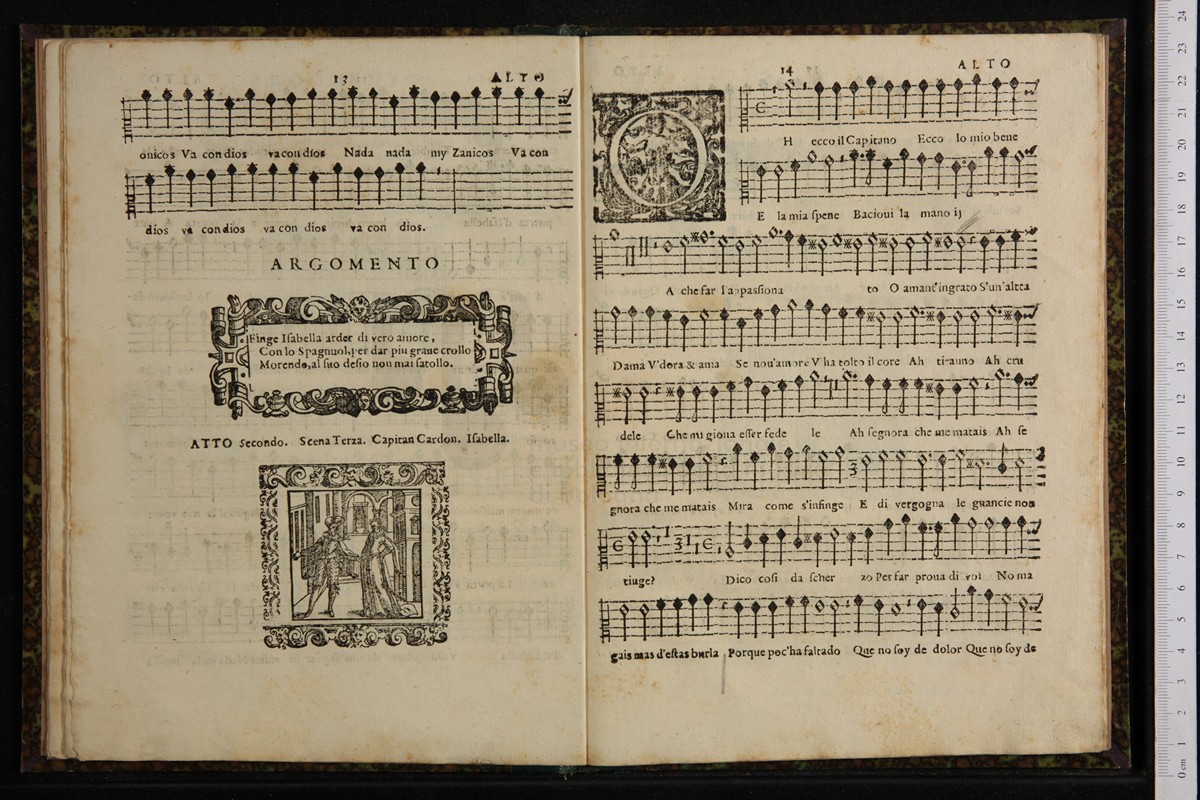 13 ALTO
onicos Va con dios va con dios Nada nada my Zanicos Va con
dios va con dios va con dios va con dios.
ARGOMENTO
Finge Iſabella arder di vero amore,
Con lo Spagnuol, per dar piu graue crollo
Morendo, al ſuo deſio non mai ſatollo.
ATTO Secondo. Scena Terza. Capitan Cardon. Iſabella.
14 ALTO
O
H ecco il Capitano Ecco lo mio bene
E la mia ſpene Bacioui la mano ij
A che far l'appaſſiona to O amant'ingrato S'un'altra
Dama V'dora & ama Se nou'amore V'ha tolto il core Ah tiranno Ah cru
dele Che mi gioua eſſer fede le Ah ſegnora che me matais Ah ſe
gnora che me matais Mira come s'infinge E di vergogna le guancie non
tinge? Dico coſi da ſcher zo Per far proua di voi No ma
gais mas d'eſtas burla Porque poc'ha faltado Que no ſoy de dolor Que no ſoy de
24 23 22 21 20 19 18 17 16 15 14 13 12 11 10 9 8 7 6 5 4 3 2 1 0 cm